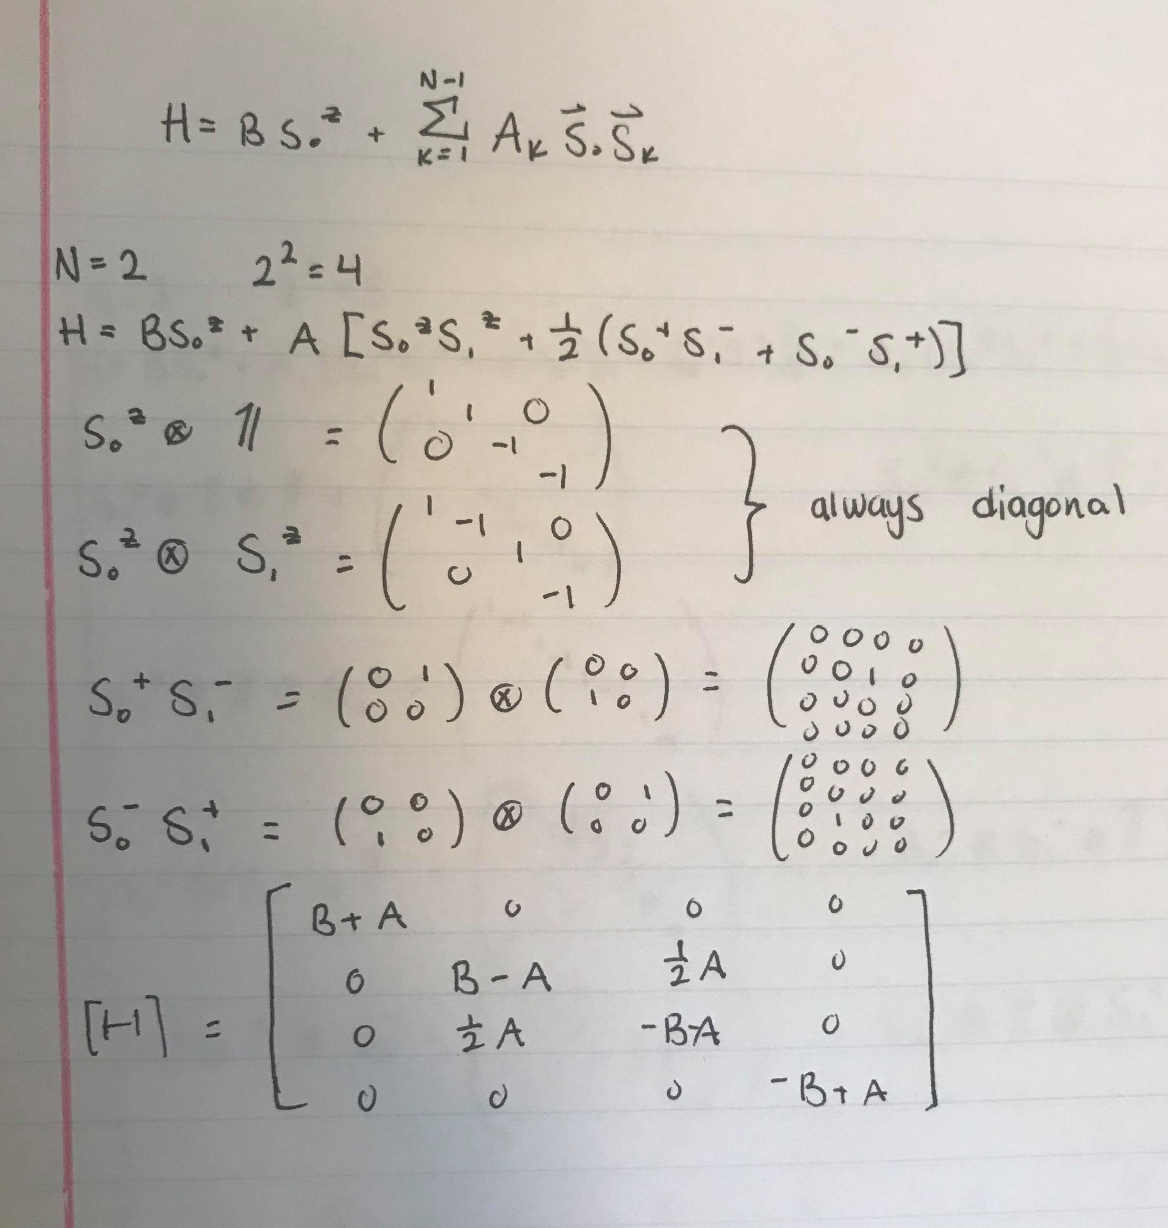 H = B S₀ᶻ + Σ_{K=1}^{N-1} A_K S⃗₀ S⃗_K
N = 2    2² = 4
H = BS₀ᶻ + A [S₀ᶻS₁ᶻ + ½ (S₀⁺S₁⁻ + S₀⁻S₁⁺)]
S₀ᶻ ⊗ 𝟙 = (1 1 0 0 -1 -1)
} always diagonal
S₀ᶻ ⊗ S₁ᶻ = (1 -1 0 1 0 -1)
S₀⁺ S₁⁻ = (0 1 0 0) ⊗ (0 0 1 0) = (0 0 0 0 0 0 1 0 0 0 0 0 0 0 0 0)
S₀⁻ S₁⁺ = (0 0 1 0) ⊗ (0 1 0 0) = (0 0 0 0 0 0 0 0 0 1 0 0 0 0 0 0)
B+A 0 0 0
0 B-A ½A 0
[H] = 0 ½A -B-A 0
0 0 0 -B+A